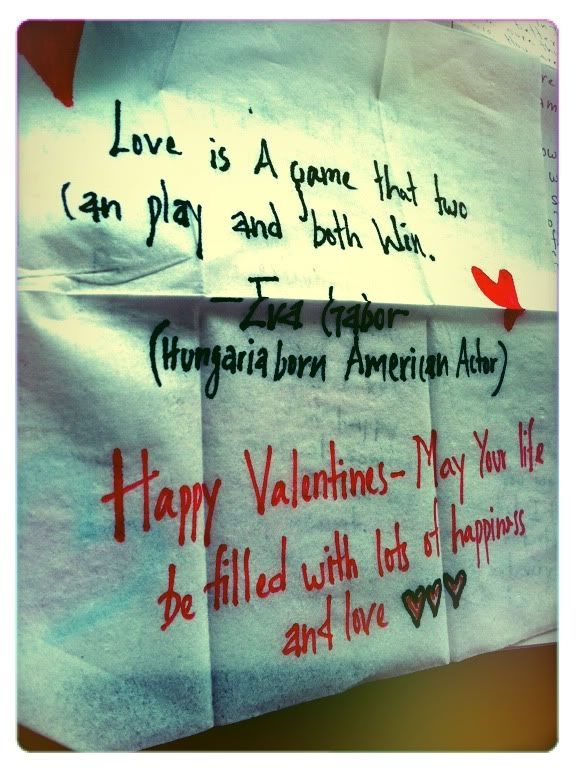 Love is A game that two
can play and both Win.
—Eva Gabor
(Hungaria born American Actor)
Happy Valentines- May Your life
be filled with lots of happiness
and love